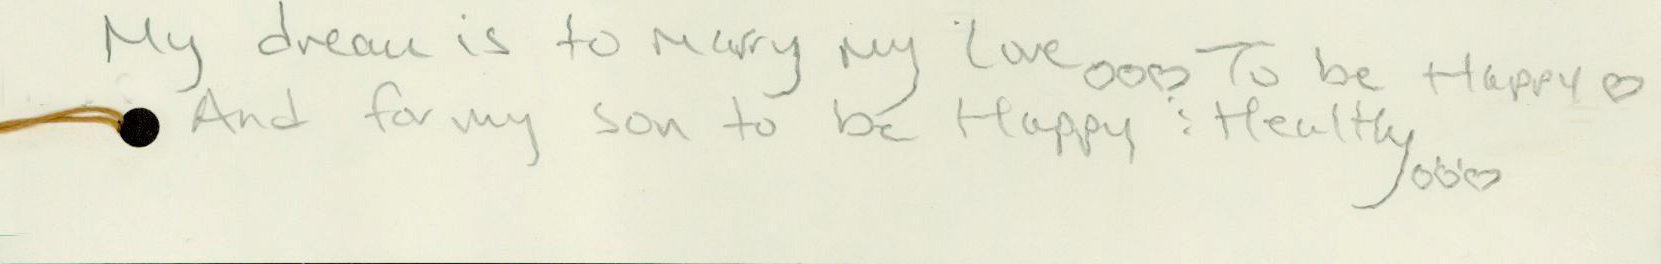 My dream is to marry my love ♡♡♡ To be Happy ♡
And for my son to be Happy & Healthy ♡♡♡